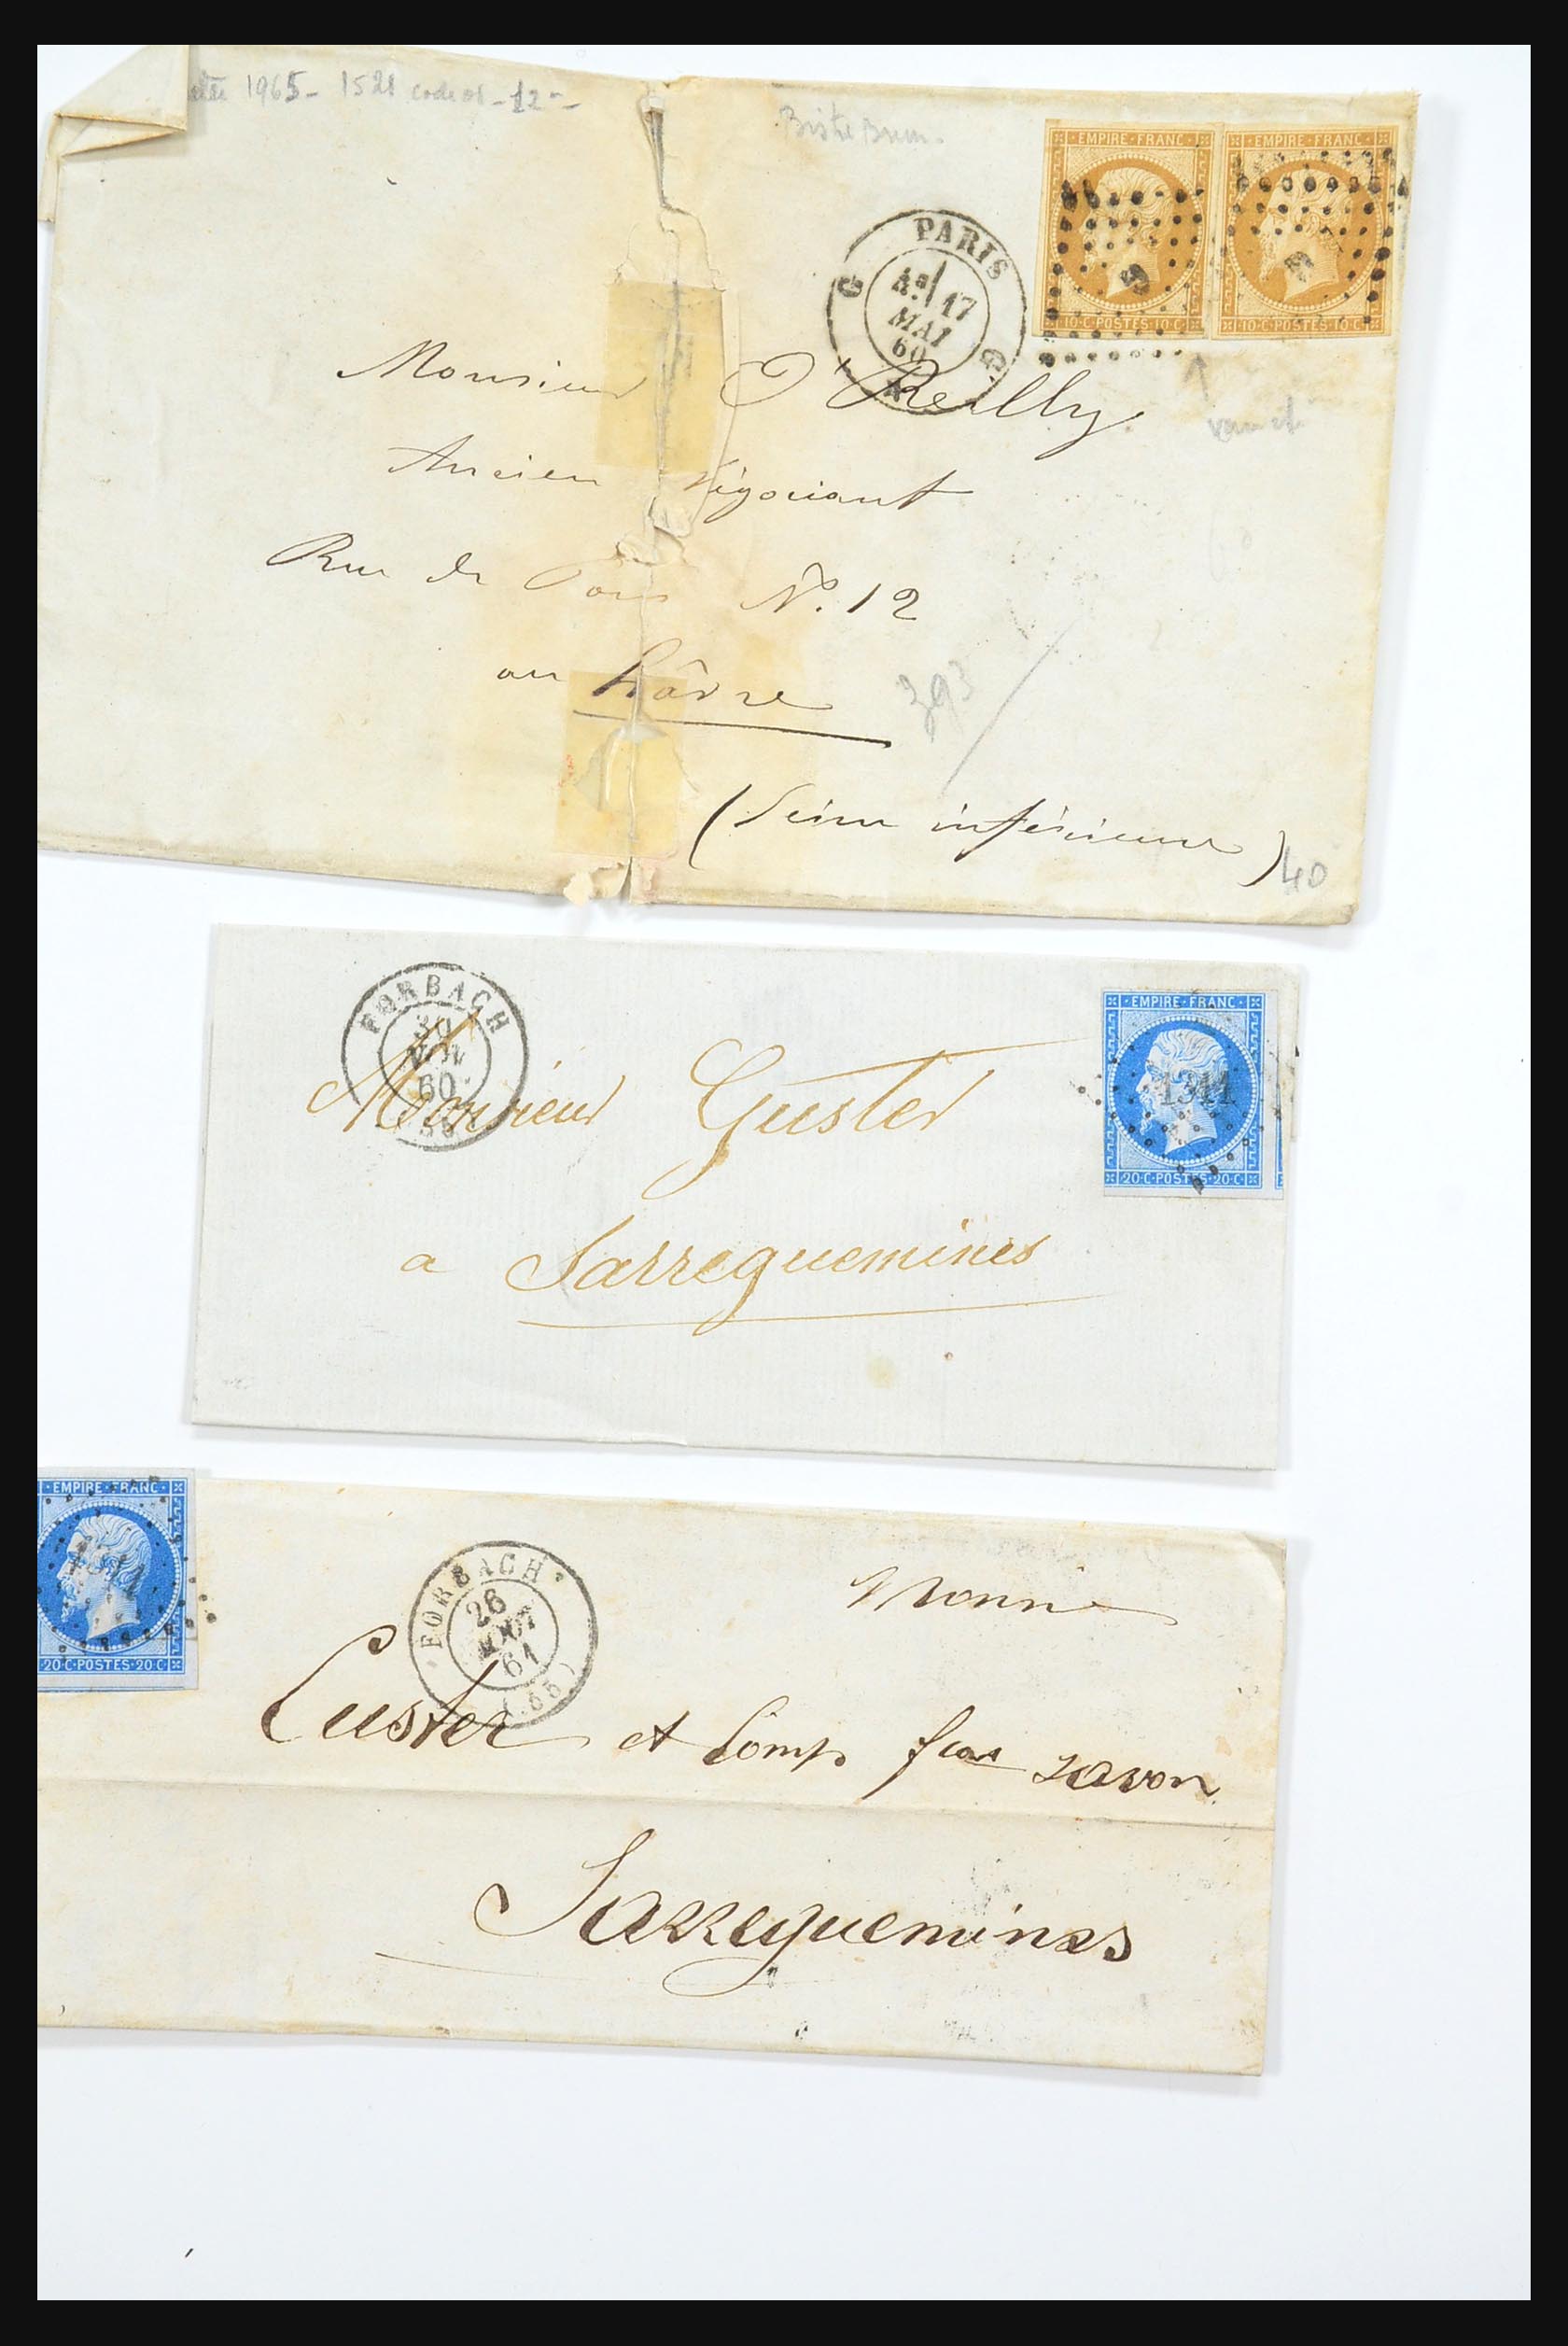 1965- 1521
Bistre Brun.
EMPIRE FRANC
EMPIRE FRANC
10 C POSTES 10 C
10 C POSTES 10 C
PARIS
17
MAI
60
G G
Monsieur O'Reilly
Ancien Négociant
Rue de Paris Nº. 12
au hâvre
393
(Seine inférieure)
40
FORBACH
30
60
EMPIRE FRANC
1311
20 C POSTES 20 C
Monsieur Guster
a Sarreguemines
EMPIRE FRANC
20 C POSTES 20 C
FORBACH
26
AOUT
61
(55)
Custer et Comp savon
Sarreguemines